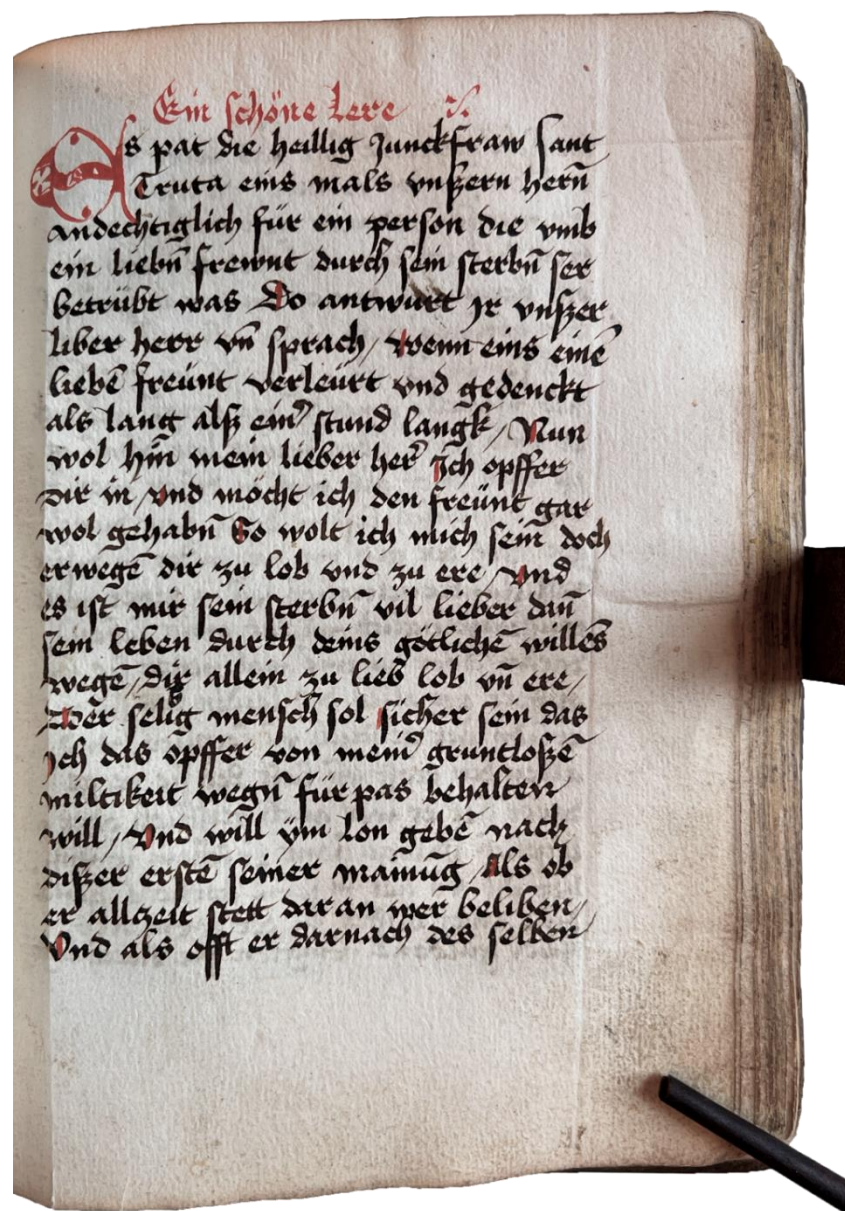 Ein schöne lere
Es pat die heillig Junckfraw sant
Truta eins mals vnßern hern̄
andechtiglich für ein person die vmb
ein liebn̄ frewnt durch sein sterbn̄ ser
betrübt was Do antwurt Jr vnßer
liber herr vn̄ sprach / Wenn eins einē
liebē freünt verleürt vnd gedenckt
als lang alß ein᷑ stund langk / Nun
wol hin̄ mein lieber her᷑ Jch opffer
Dir in / vnd möcht ich den freünt gar
wol gehabn̄ So wolt ich mich sein doch
erwegē dir zu lob vnd zu ere / vnd
es ist mir sein sterbn̄ vil lieber dan̄
sein leben durch deins götlichē willēs
wegē / dir allein zu lieb lob vn̄ ere /
Der selig mensch sol sicher sein das
Jch das opffer von mein᷑ gruntloßē
miltikeit wegn̄ für pas behalten
will / Vnd will ym lon gebē nach
dißer erstē seiner mainūg / Als ob
er allczeit stett daran wer beliben /
Vnd als offt er darnach des selben